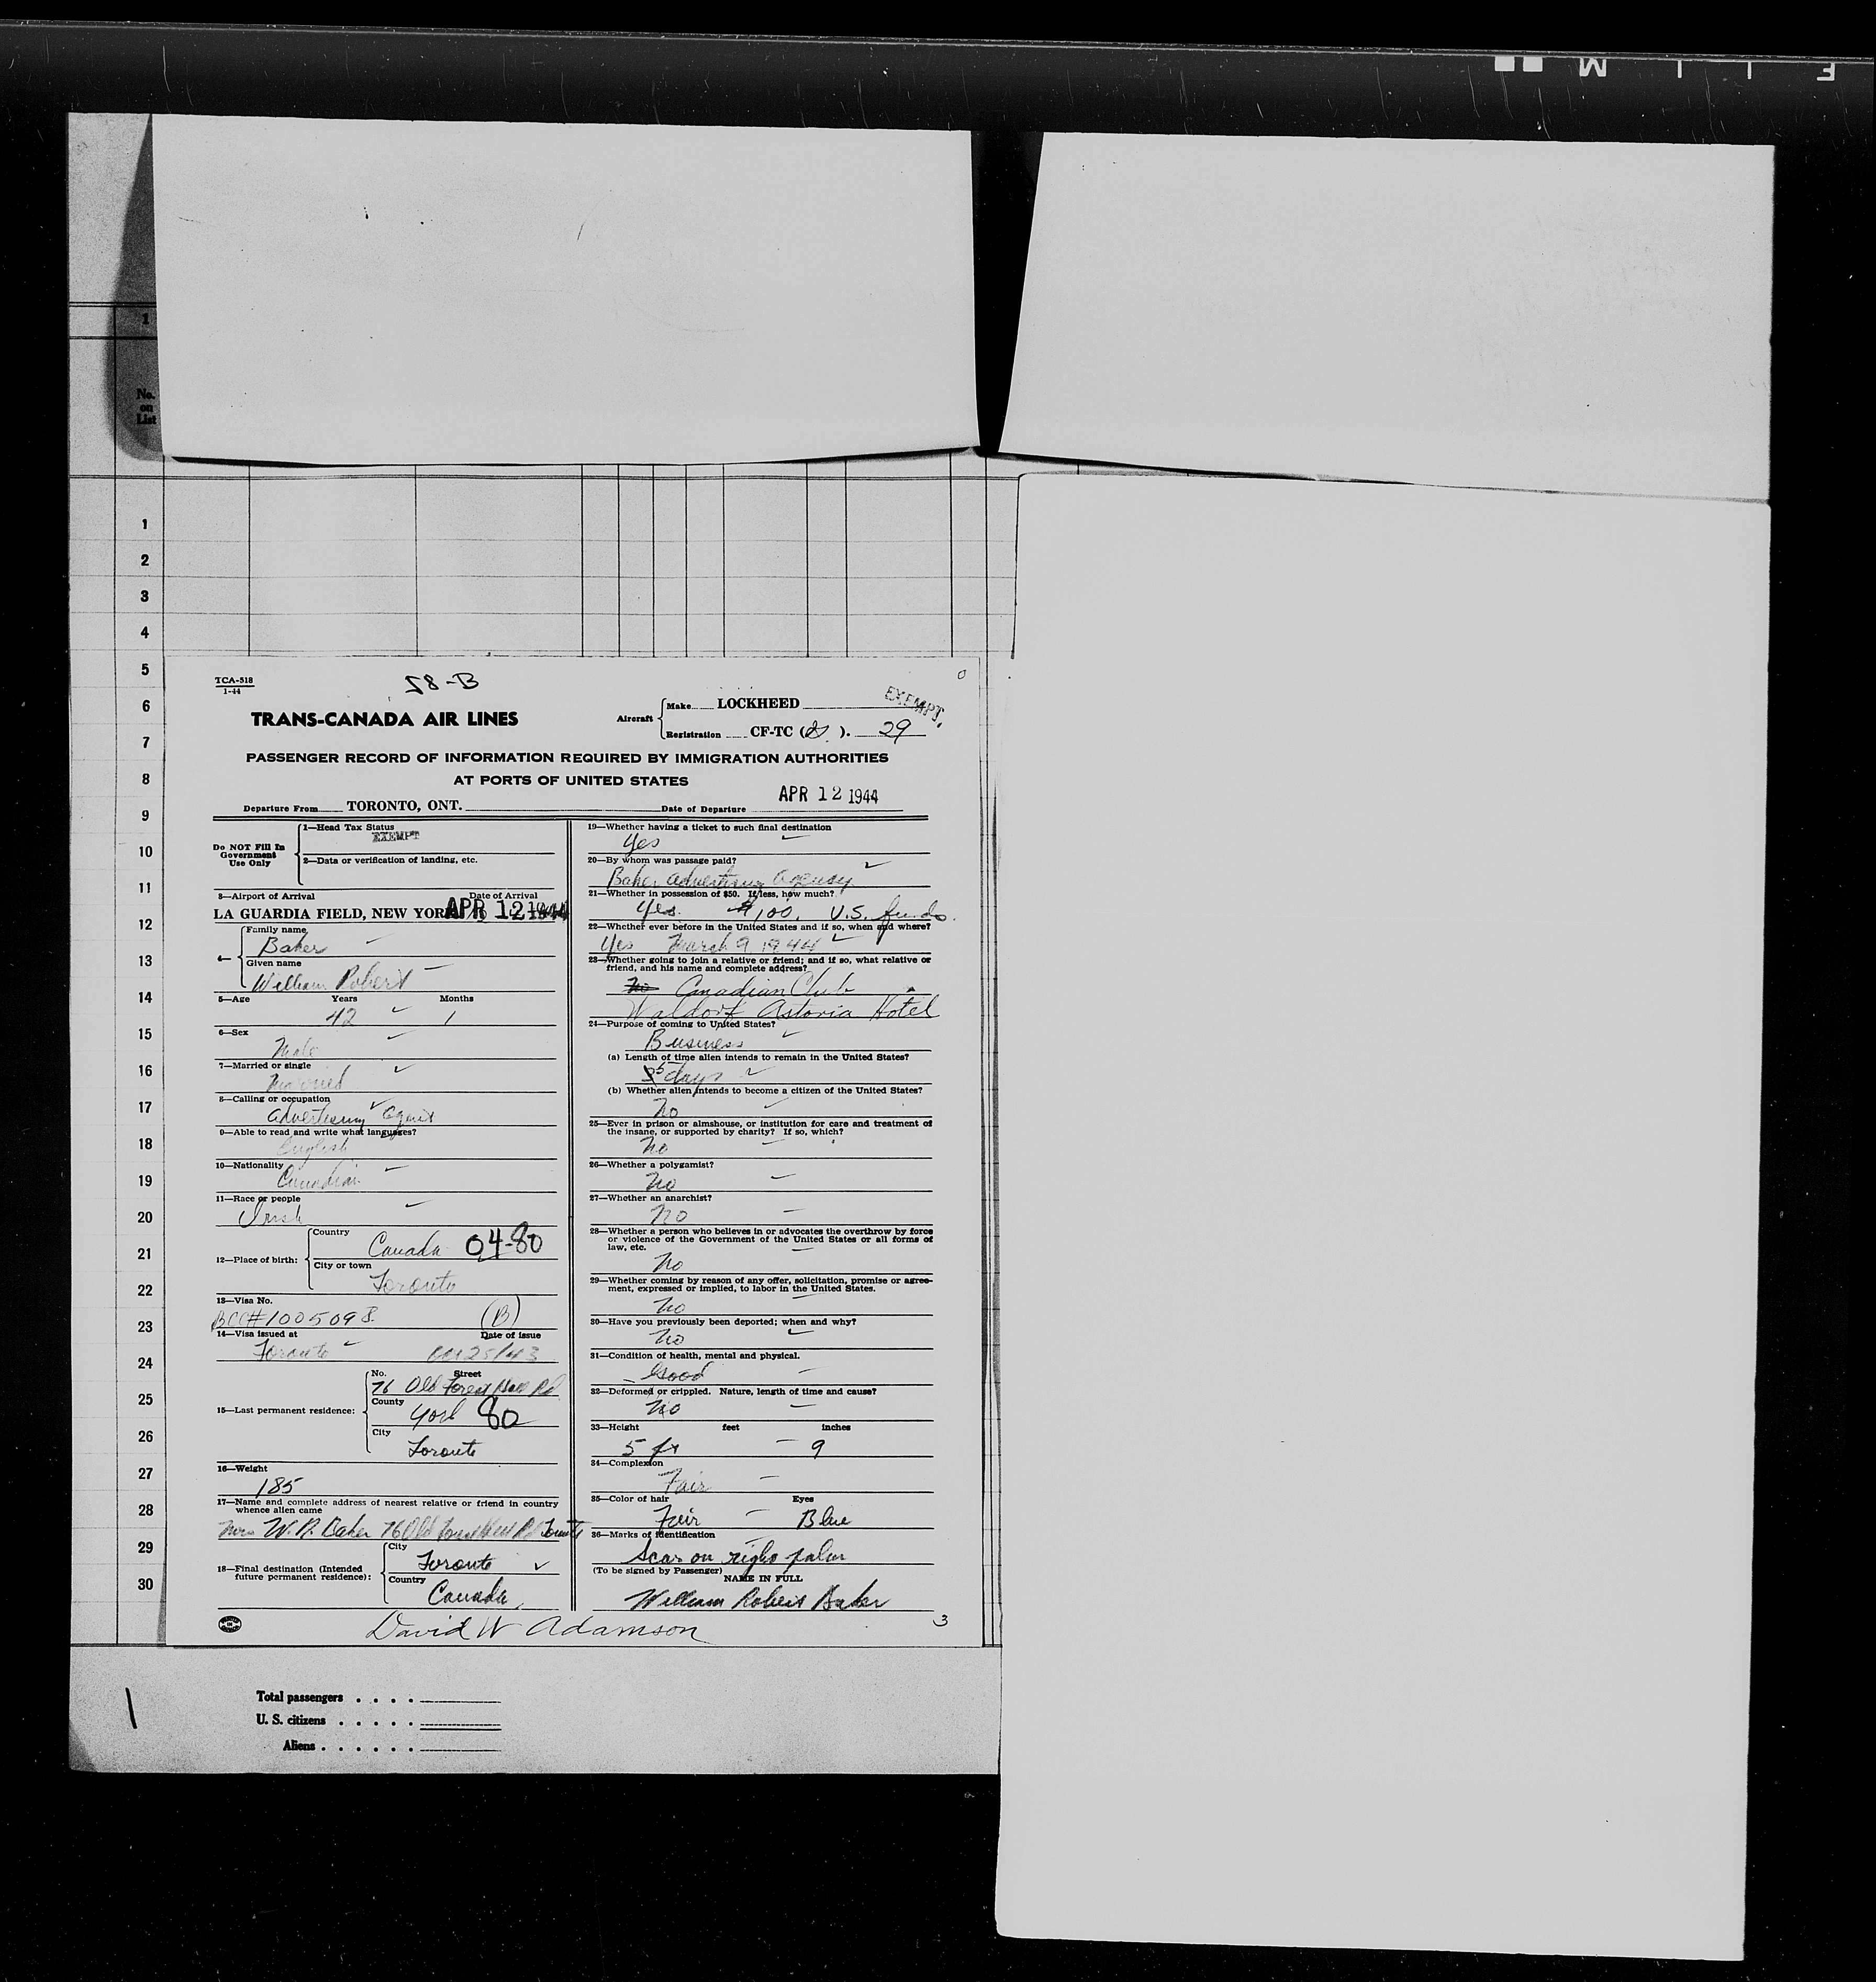 F I L M
1
No.
on
List
1
2
3
4
5
6
7
8
9
10
11
12
13
14
15
16
17
18
19
20
21
22
23
24
25
26
27
28
29
30
TCA-518
1-44
58-B
TRANS-CANADA AIR LINES
Aircraft
Make LOCKHEED
EXEMPT.
Registration CF-TC ( ). 29
PASSENGER RECORD OF INFORMATION REQUIRED BY IMMIGRATION AUTHORITIES
AT PORTS OF UNITED STATES
Departure From TORONTO, ONT. Date of Departure APR 12 1944
Do NOT Fill In
Government
Use Only
1—Head Tax Status
EXEMPT
2—Data or verification of landing, etc.
3—Airport of Arrival Date of Arrival
LA GUARDIA FIELD, NEW YORK APR 12 1944
4—
Family name
Baker
Given name
William Robert
5—Age Years Months
42 1
6—Sex
Male
7—Married or single
Married
8—Calling or occupation
Advertising Agent
9—Able to read and write what languages?
English
10—Nationality
Canadian
11—Race or people
Irish
12—Place of birth:
Country
Canada 04-80
City or town
Toronto
13—Visa No.
BCC#1005098. (B)
14—Visa issued at Date of issue
Toronto 25/43
15—Last permanent residence:
No. Street
76 Old Forest Hill Rd
County
York 80
City
Toronto
16—Weight
185
17—Name and complete address of nearest relative or friend in country
whence alien came
Mrs W. R. Baker 76 Old Forest Hill Rd Toronto
18—Final destination (Intended
future permanent residence):
City
Toronto
Country
Canada
19—Whether having a ticket to such final destination
Yes
20—By whom was passage paid?
Baker Advertising Agency
21—Whether in possession of $50. If less, how much?
Yes. $100. U.S. funds.
22—Whether ever before in the United States and if so, when and where?
Yes March 9 1944
23—Whether going to join a relative or friend; and if so, what relative or
friend, and his name and complete address?
No Canadian Club
Waldorf Astoria Hotel
24—Purpose of coming to United States?
Business
(a) Length of time alien intends to remain in the United States?
5 days
(b) Whether alien intends to become a citizen of the United States?
No
25—Ever in prison or almshouse, or institution for care and treatment of
the insane, or supported by charity? If so, which?
No
26—Whether a polygamist?
No
27—Whether an anarchist?
No
28—Whether a person who believes in or advocates the overthrow by force
or violence of the Government of the United States or all forms of
law, etc.
No
29—Whether coming by reason of any offer, solicitation, promise or agree-
ment, expressed or implied, to labor in the United States.
No
30—Have you previously been deported; when and why?
No
31—Condition of health, mental and physical.
Good
32—Deformed or crippled. Nature, length of time and cause?
No
33—Height feet inches
5 ft 9
34—Complexion
Fair
35—Color of hair Eyes
Fair Blue
36—Marks of identification
Scar on right palm
(To be signed by Passenger)
NAME IN FULL
William Robert Baker
David W Adamson
3
Total passengers
U. S. citizens
Aliens